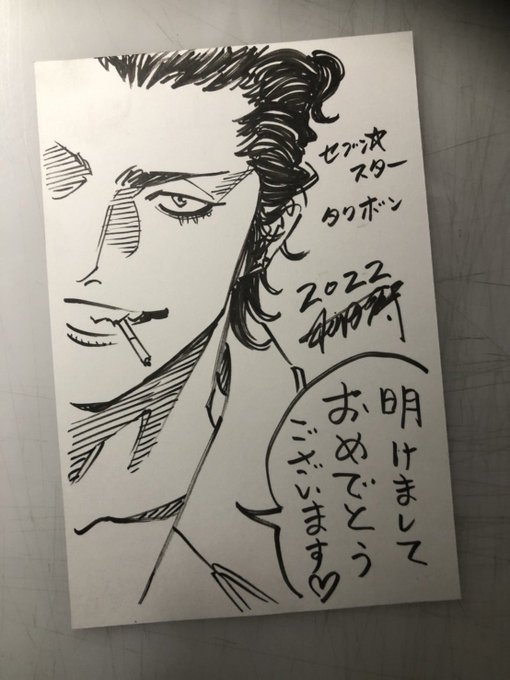 セブン☆
スター
タクボン
2022
明けまして
おめでとう
ございます♡